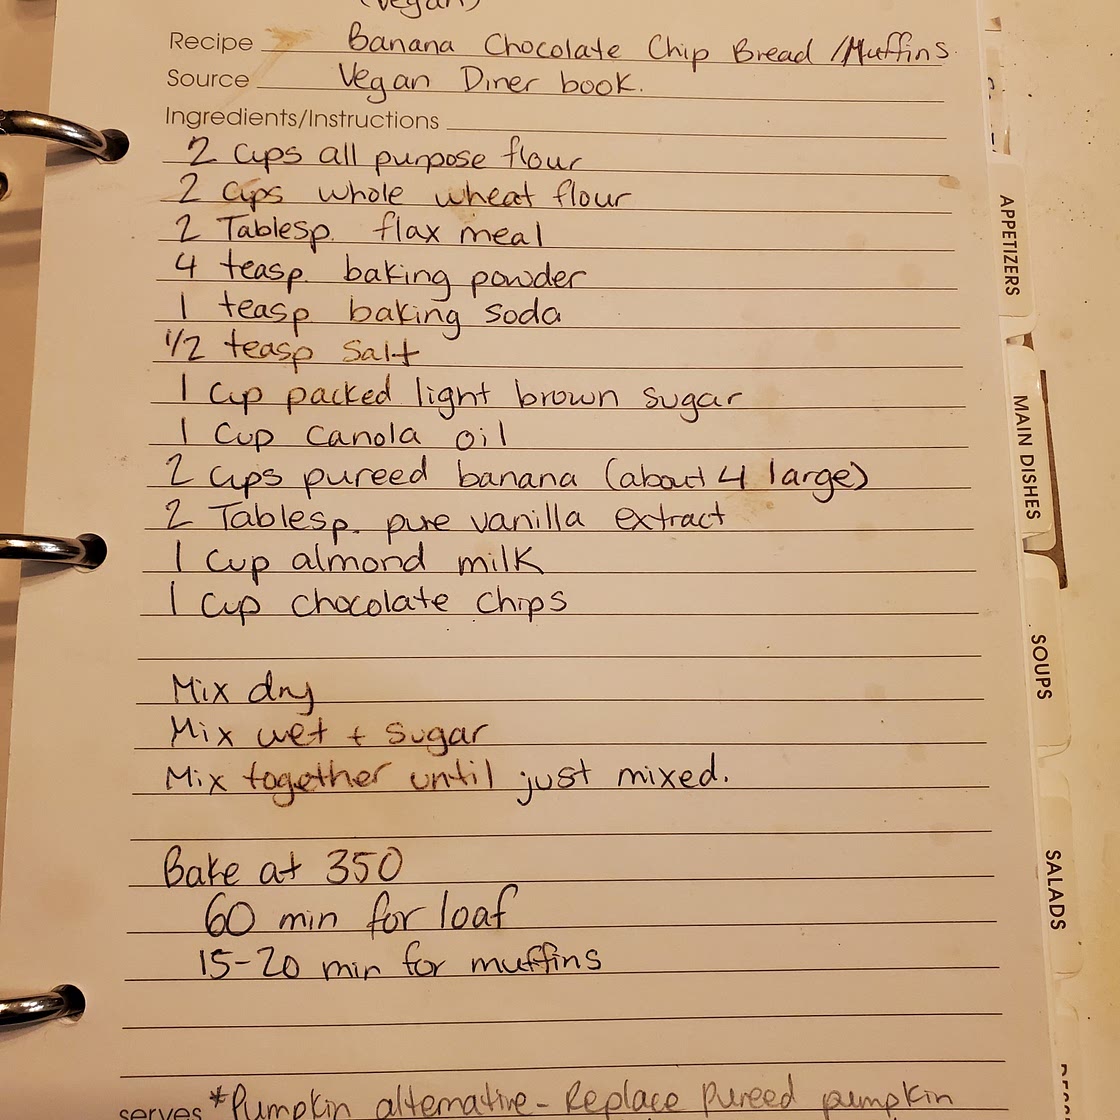 (vegan)
Recipe Banana Chocolate Chip Bread/Muffins
Source Vegan Diner book.
Ingredients/Instructions
2 cups all purpose flour
2 cups whole wheat flour
2 Tablesp. flax meal
4 teasp. baking powder
1 teasp. baking soda
1/2 teasp salt
1 cup packed light brown sugar
1 cup canola oil
2 cups pureed banana (about 4 large)
2 Tablesp. pure vanilla extract
1 cup almond milk
1 cup chocolate chips
Mix dry
Mix wet + sugar
Mix together until just mixed.
Bake at 350
60 min for loaf
15-20 min for muffins
serves *Pumpkin alternative - Replace Pureed pumpkin
APPETIZERS
MAIN DISHES
SOUPS
SALADS